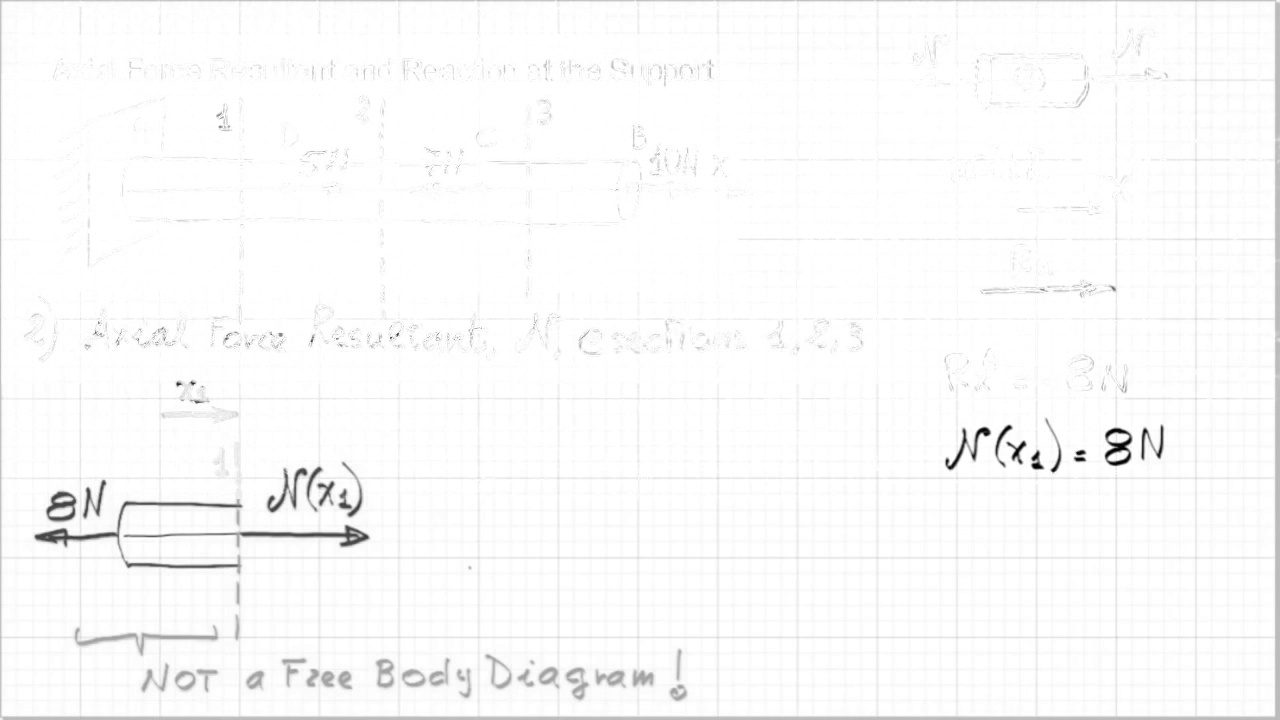 Axial Force Resultant and Reaction at the Support
N N
1 2 3
D C B
5N 7N 10N x
x
Rx
2) Axial Force Resultant, N, @ sections 1,2,3
= 8N
x1
N(x1) = 8N
1
8N N(x1)
NOT a Free Body Diagram!